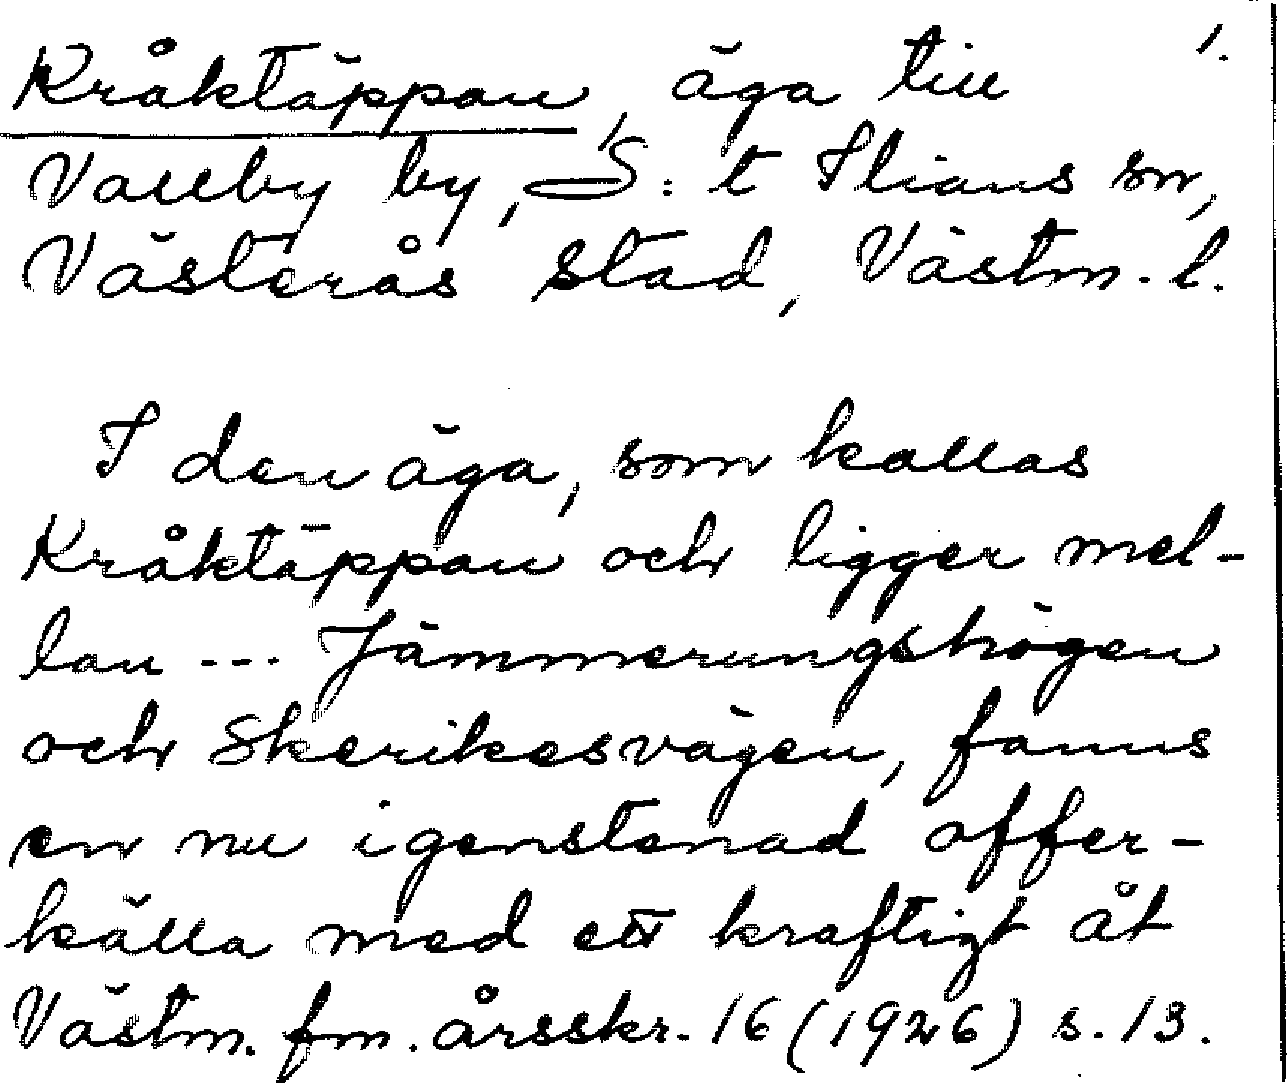 Kråktäppan, äga till 1.
Vallby by, S:t Ilians sn,
Västerås stad, Västm. l.
I den äga, som kallas
Kråktäppan och ligger mel-
lan --- Jämmerungshögen
och Skerikesvägen, fanns
en nu igenstenad offer-
källa med ett kraftigt åt
Västm. fm. årsskr. 16 (1926) s. 13.